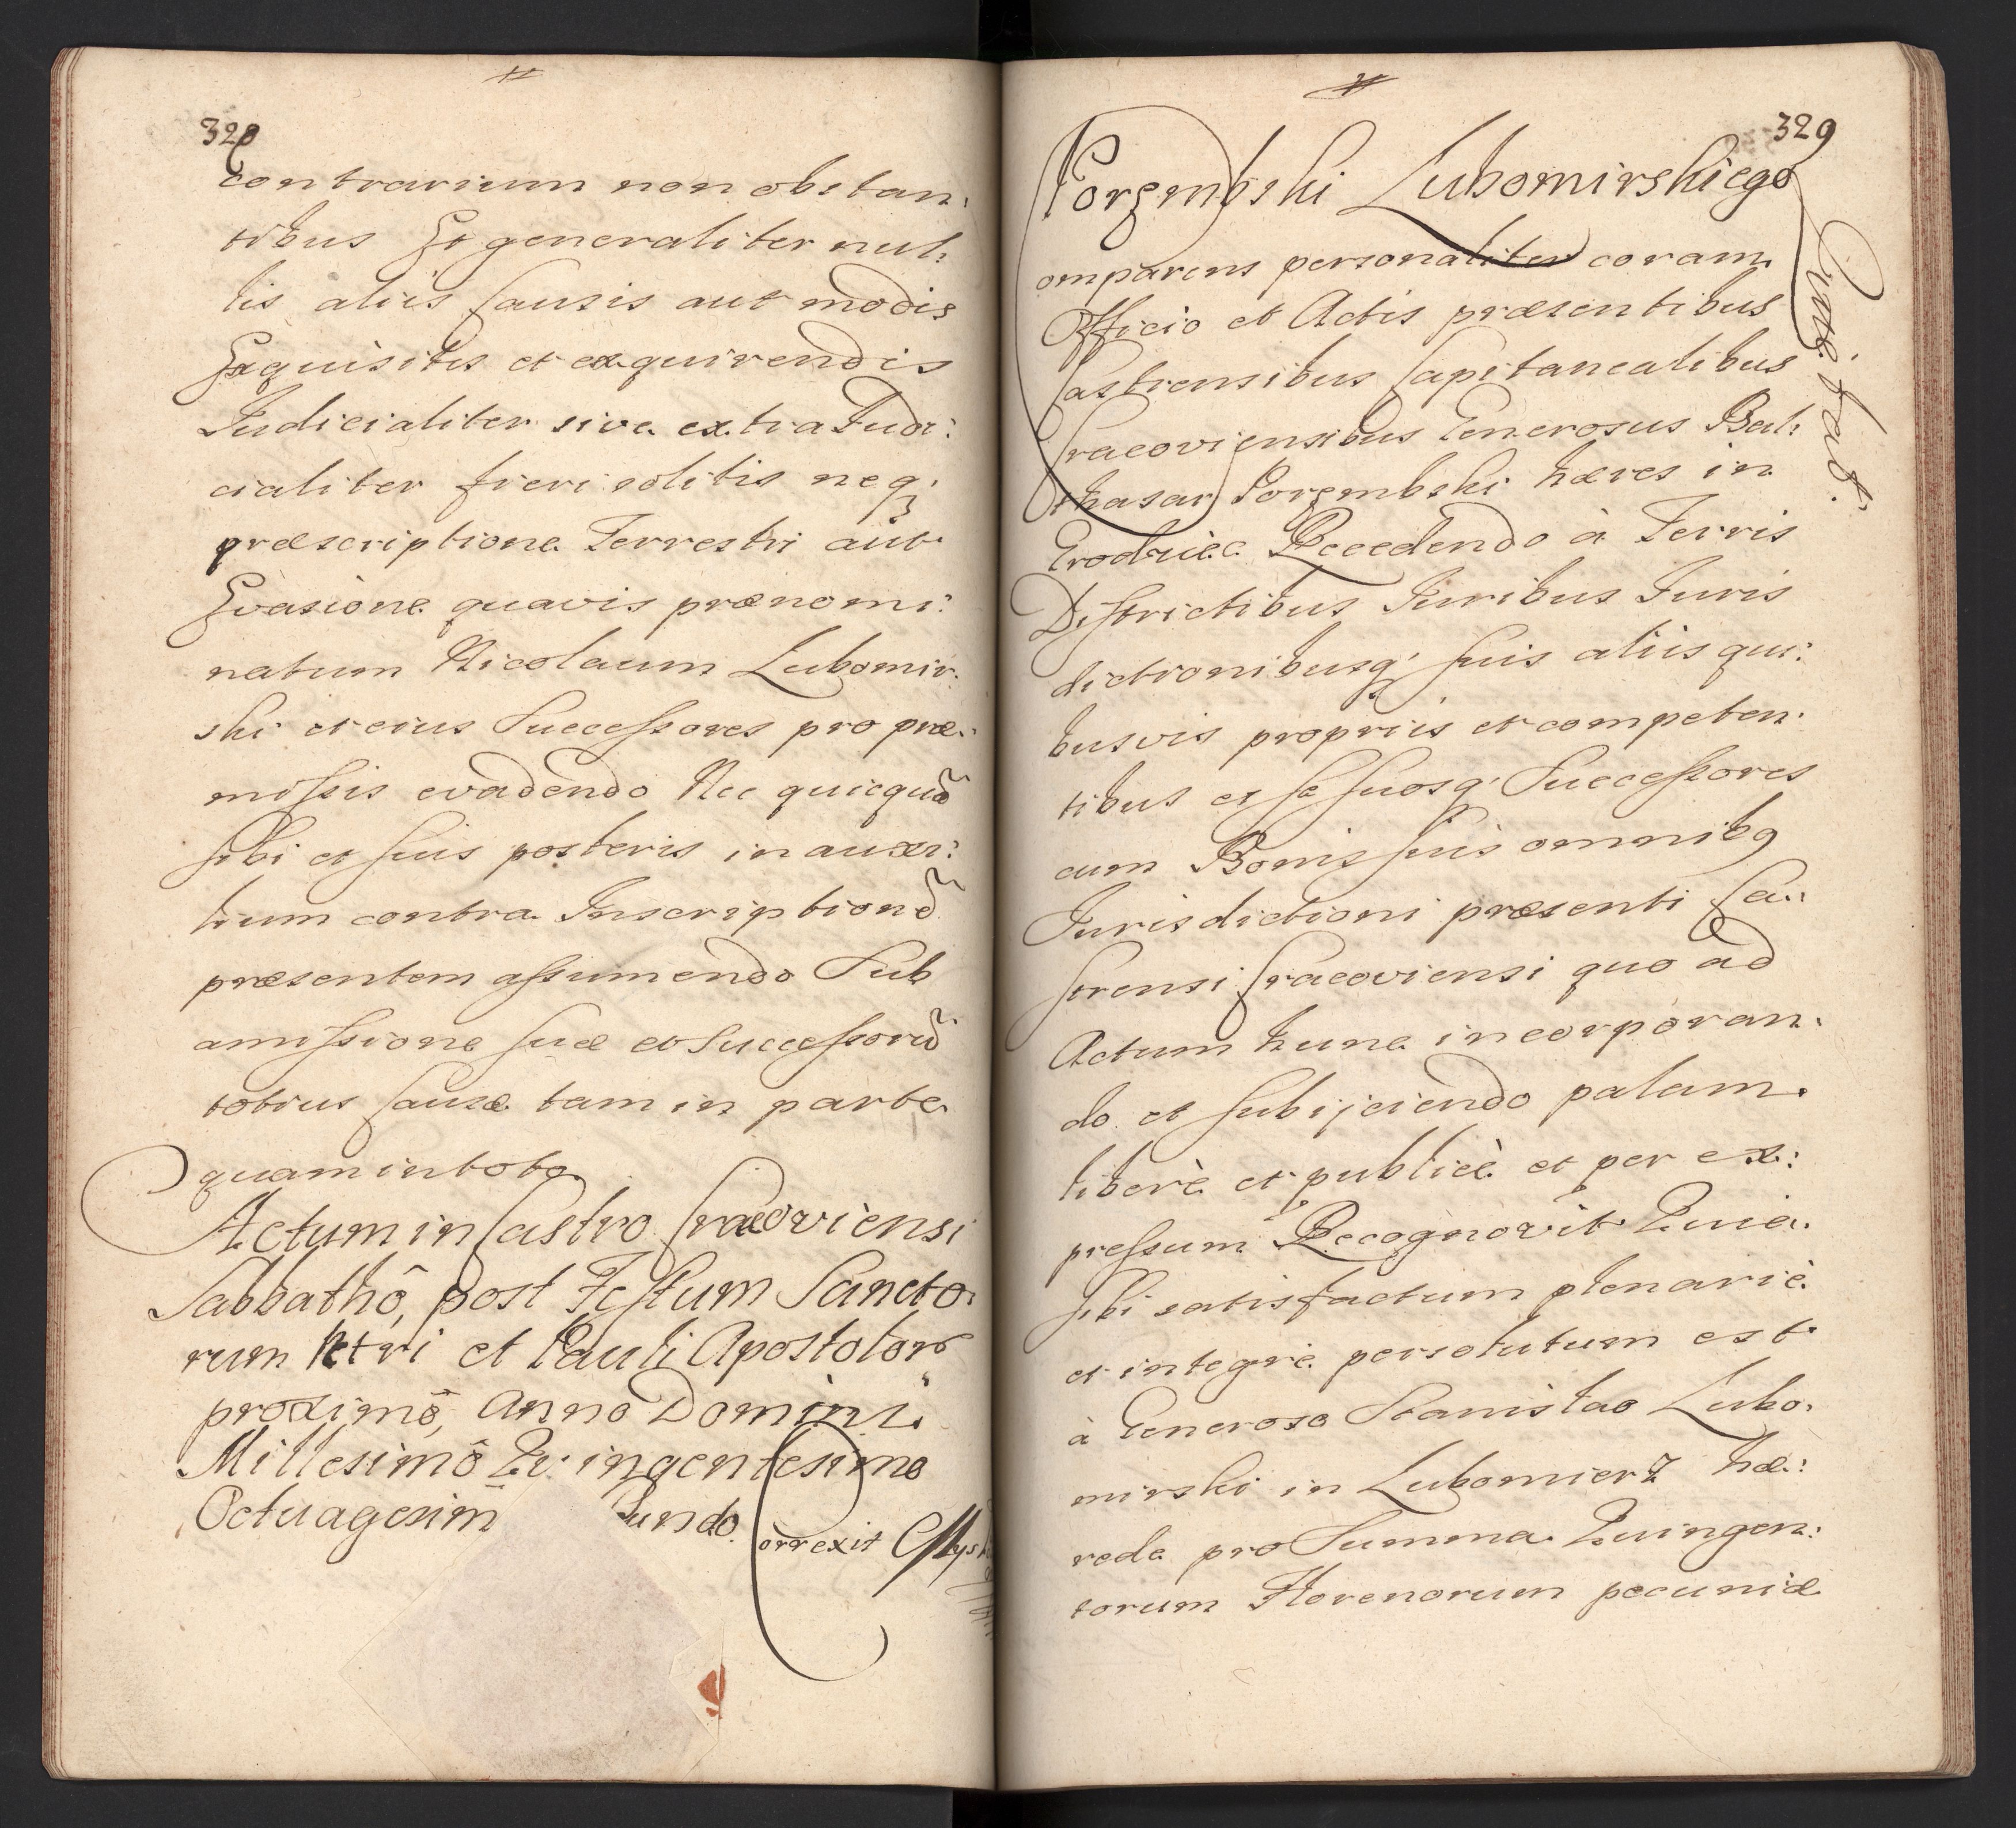 328
contrarium non obstan:
tibus Et generaliter nul:
lis aliis Causis aut modis
Exquisitis et exquirendis
Judicialiter sive extra Judi:
cialiter fieri solitis neq;
præscriptione Terrestri aut
Evasione quavis prænomi:
natum Nicolaum Lubomir:
ski et eius Successores pro præ:
missis evadendo Nec quicquã
sibi et suis posteris in auxi:
lium contra Inscriptionẽ
præsentem assumendo Sub
amissione suæ et Successorũ
totius Causæ tam in parte
quam in toto
Actum in Castro Cracoviensi
Sabbathô, post Festum Sancto:
rum Petri et Pauli Apostolor
proximô, Anno Domini
Millesimô Quingentesimo
Octuagesim cundo.
Correxit
329
Porembski Lubomirskiego
Quitt:
Comparens personaliter coram
Officio et Actis præsentibus
Castrensibus Capitanealibus
Cracoviensibus Generosus Bal:
thasar Porembski hæres in
Recedendo à Terris
Districtibus Juribus Juris
dictionibusq; suis aliis qui:
busvis propriis et competen:
tibus et se suosq; Successores
cum Bonis suis omnibq
Jurisdictioni præsenti Ca:
strensi Cracoviensi quo ad
Actum hunc incorporan:
do et subijciendo palam
liberè et publicè et per ex:
pressum Recognovit Quia
sibi satisfactum plenariè
et integrè persolutum est
à Generoso Stanislao Lubo:
mirski in Lubomierz hæ:
rede pro Summa Quingen:
torum Florenorum pecuniæ